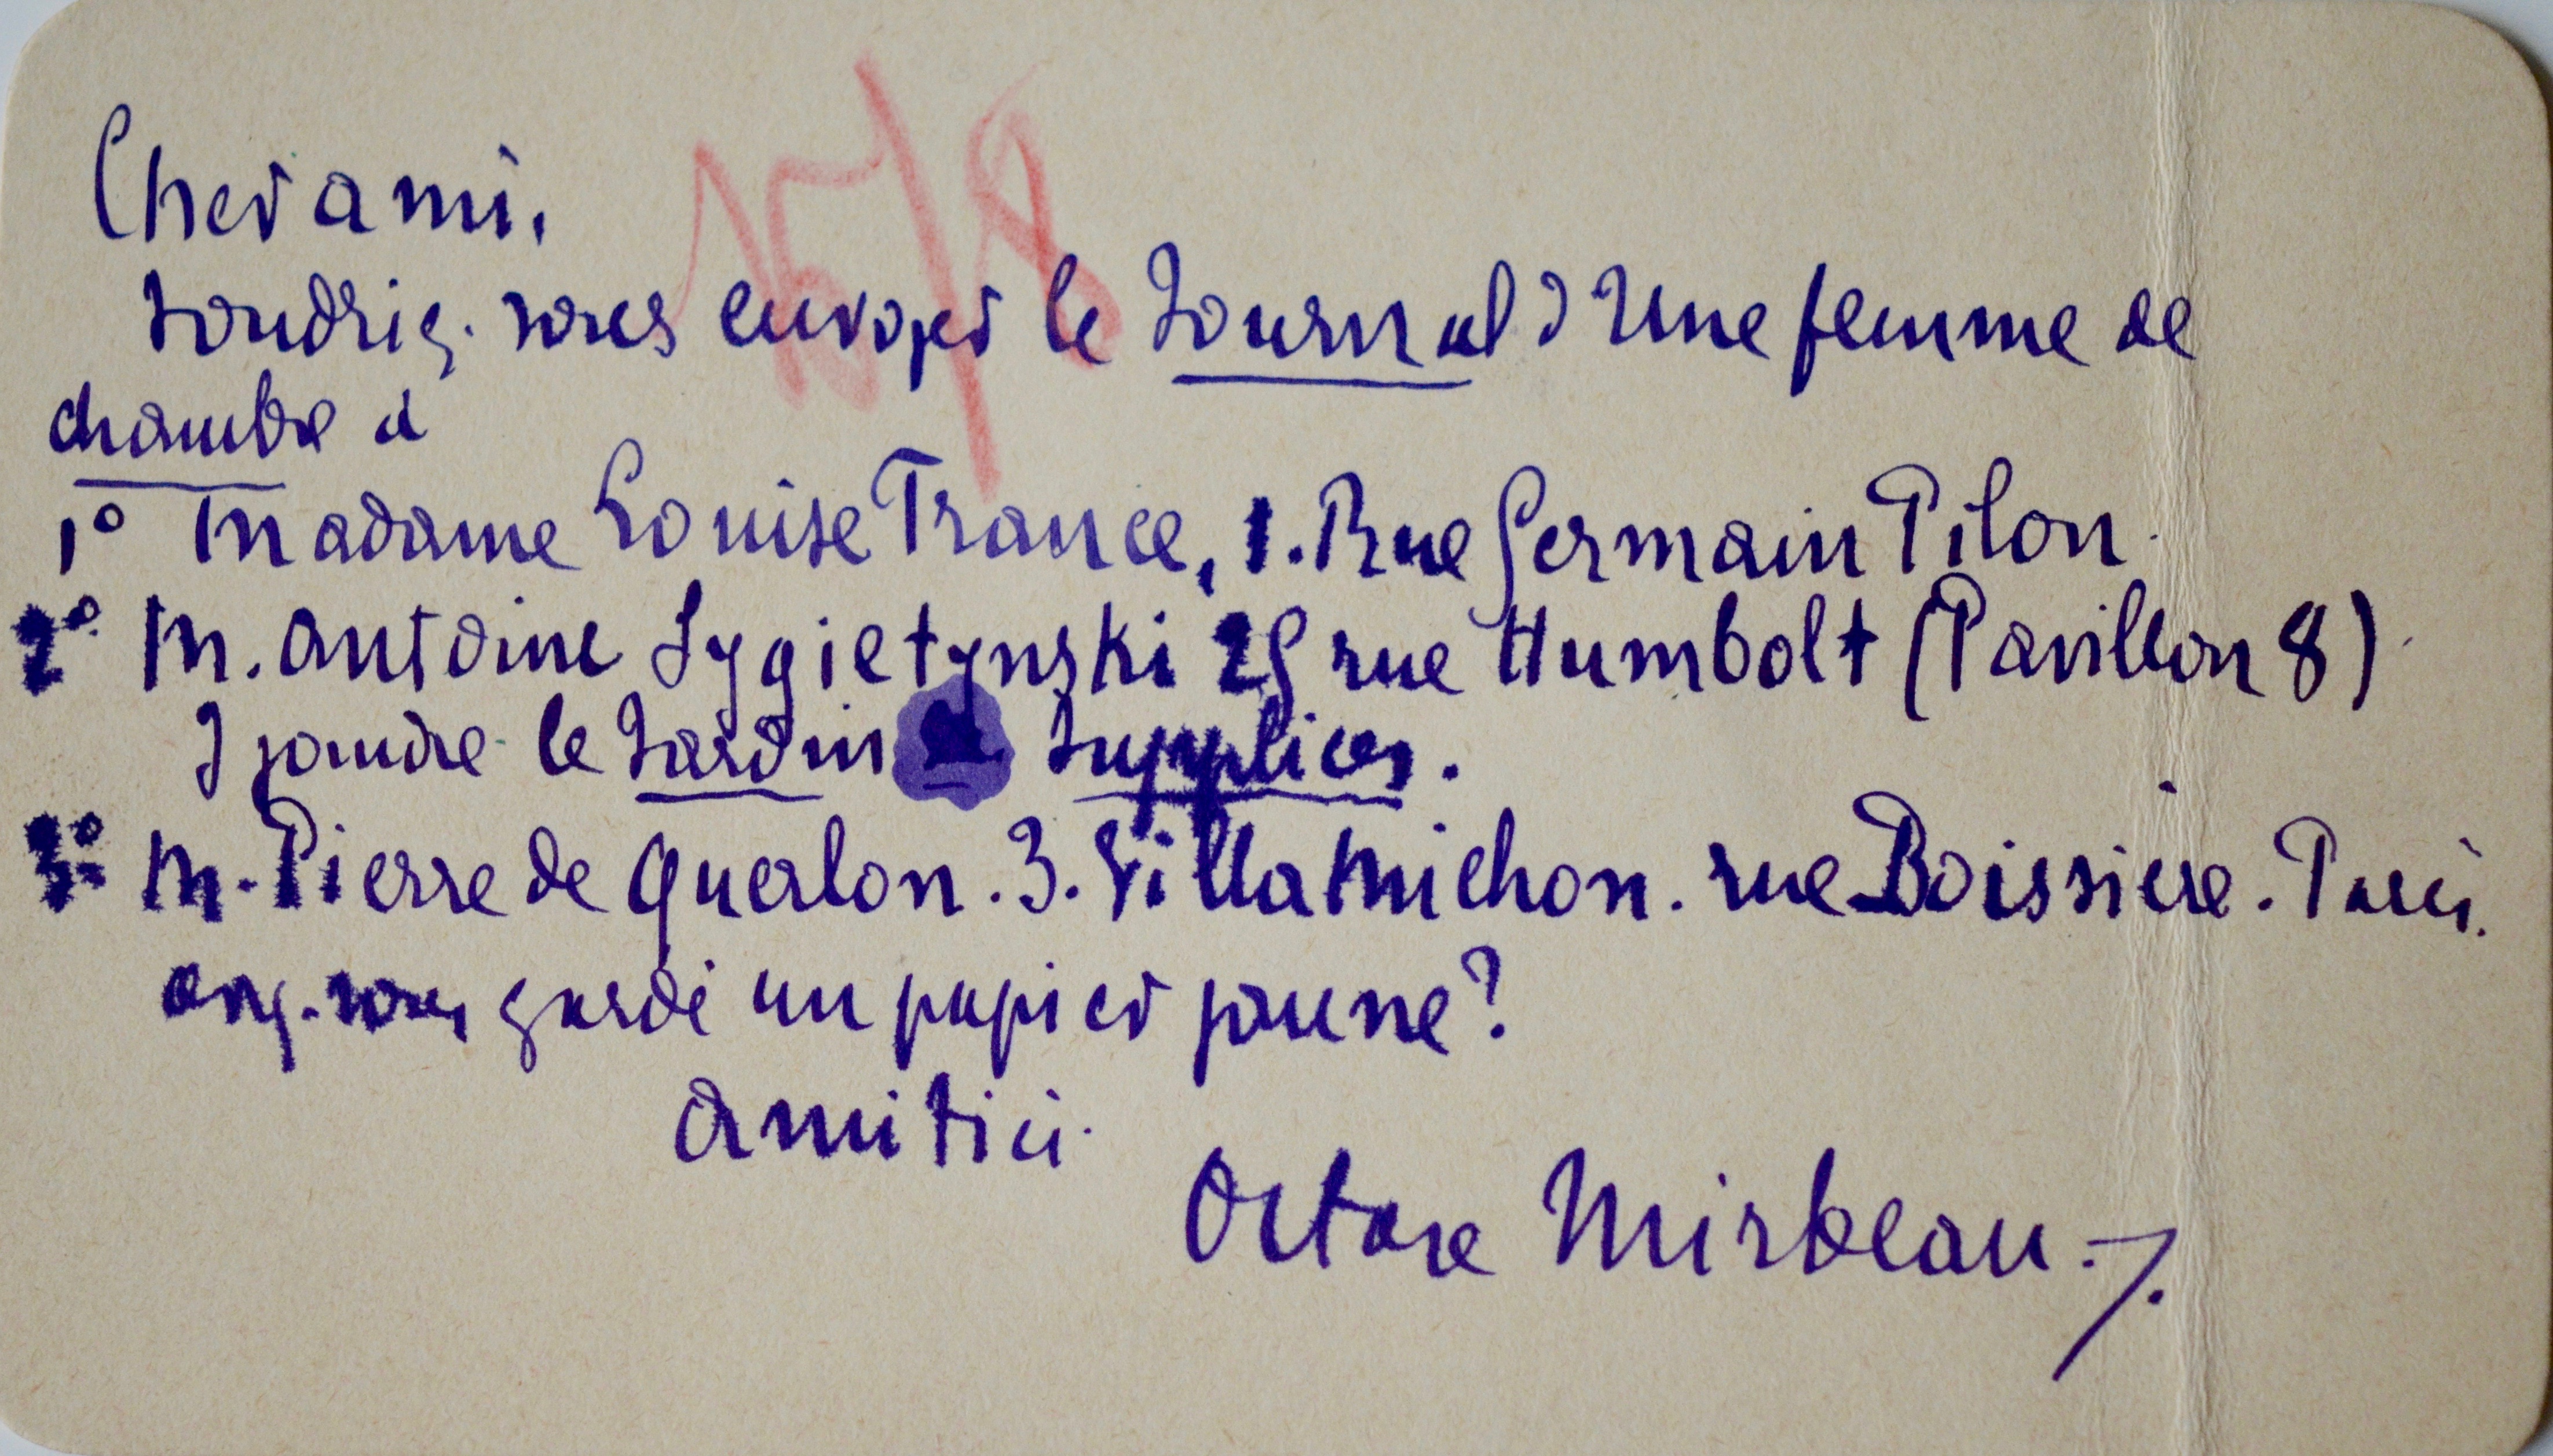 15/8
Cher ami,
Voudriez-vous envoyer le Journal d'une femme de
chambre à
1° Madame Louise France, 1. Rue Germain Pilon.
2° M. Antoine Sygietynski 25 rue Humbolt (Pavillon 8).
Y joindre le Jardin des Supplices.
3° M. Pierre de Querlon. 3. Villa Michon. rue Boissière. Paris.
avez-vous gardé un papier jaune?
amitiés.
Octave Mirbeau.